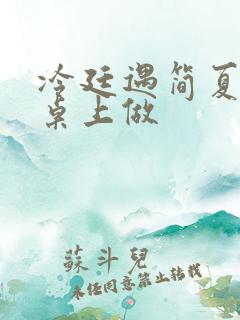 冷廷遇简夏
桌上做
蘇斗兒
未经同意禁止转载